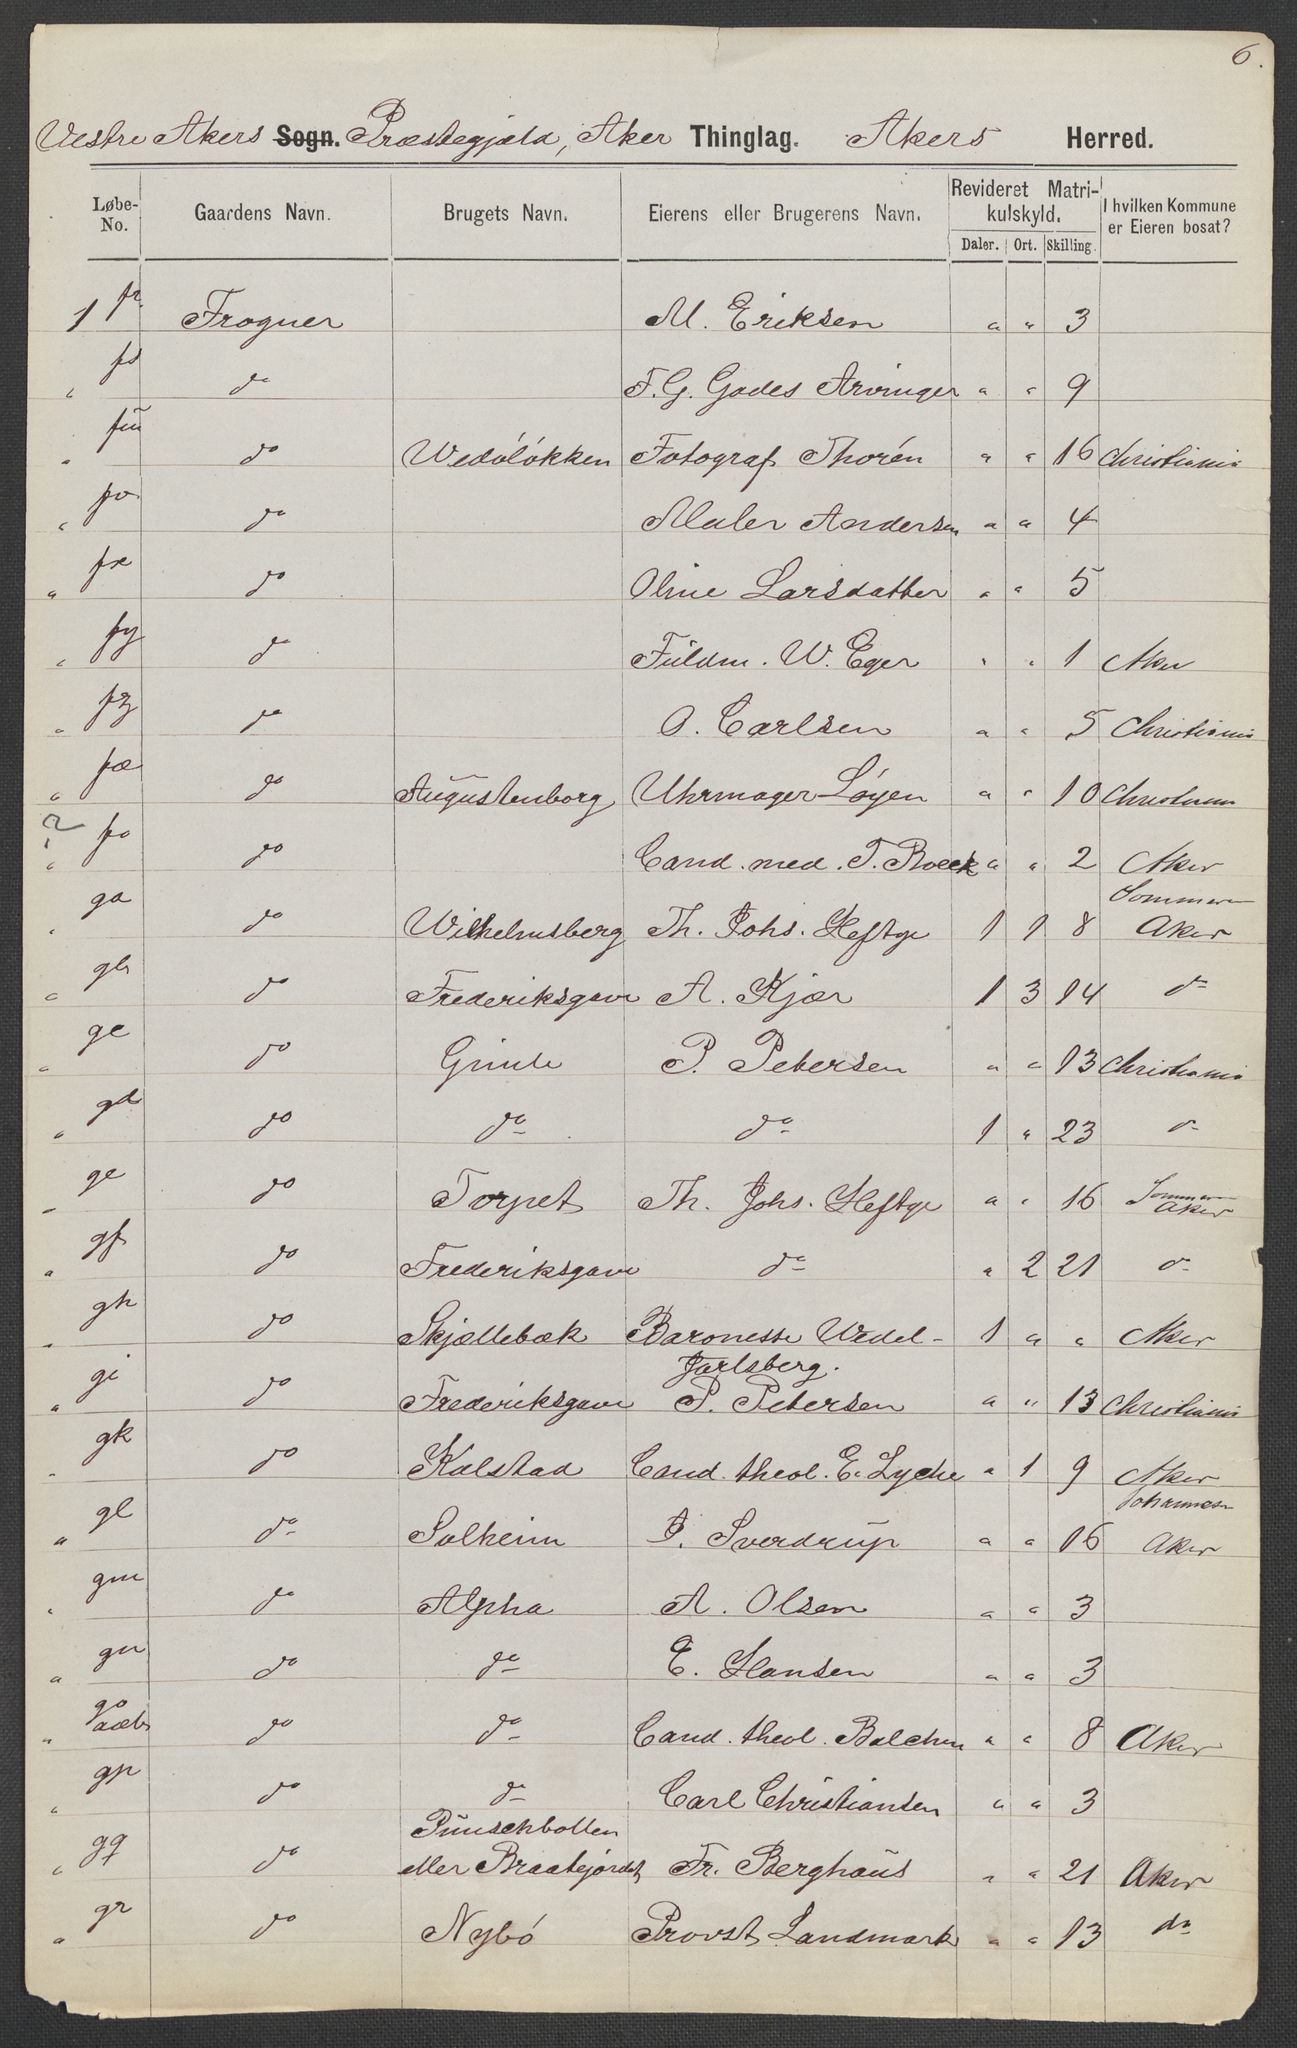 6.
Vestre Akers Sogn. Præstegjæld, Aker Thinglag. Akers Herred.
Løbe-No. Gaardens Navn. Brugets Navn. Eierens eller Brugerens Navn. Revideret Matri-kulskyld. I hvilken Kommune er Eieren bosat?
Daler. Ort. Skilling.
1 fr. Frogner M. Eriksen " " 3
" fs do F. G. Gades Arvinger " " 9
" fu do Wedöløkken Fotograf Thorén " " 16 Christiania
" fv do Maler Andersen " " 4
" fx do Oline Larsdatter " " 5
" fy do Fuldm. W. Eger " " 1 Aker
" fz do O. Carlsen " " 5 Christiania
" fæ do Augustenborg Uhrmager Løyen " " 10 Christiania
" fø do Cand. med. T. Boeck " " 2 Aker
" ga do Wilhelmsberg Th. Johs. Heftye 1 1 8 Sommeren Aker
" gb do Frederiksgave A. Kjær 1 3 14 do
" gc do Grimle P. Petersen " " 13 Christiania
" gd do do do 1 " 23 do
" ge do Torpet Th. Johs. Heftye " " 16 Sommeren Aker
" gf do Frederiksgave do " 2 21 do
" gh do Skjællebæk Baronesse Wedel- 1 " " Aker
Jarlsberg.
" gi do Frederiksgave P. Petersen " " 13 Christiania
" gk do Kalstad Cand. theol. E. Lyche " 1 9 Aker
" gl do Solheim J. Sverdrup " " 16 Johannes Aker
" gm do Alpha A. Olsen " " 3
" gn do do E. Hansen " " 3
" go do do Cand. theol. Balchen " " 8 Aker
" gp do do Carl Christiansen " " 3
Punschbollen
" gq do eller Braatejordet Fr. Berghaus " " 21 Aker
" gr do Nybö Provst Landmark " " 13 do